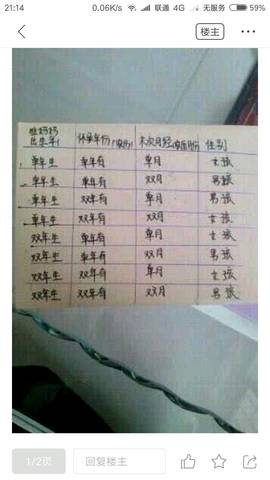 21:14 0.06K/s 联通 4G 59%
楼主
准妈妈
出生年 怀孕年份(农历) 末次月经(农历月份) 性别
单年生 单年有 单月 女孩
单年生 单年有 双月 男孩
单年生 双年有 单月 男孩
单年生 双年有 双月 女孩
双年生 单年有 单月 女孩
双年生 单年有 双月 男孩
双年生 双年有 单月 女孩
双年生 双年有 双月 男孩
1/2页 回复楼主